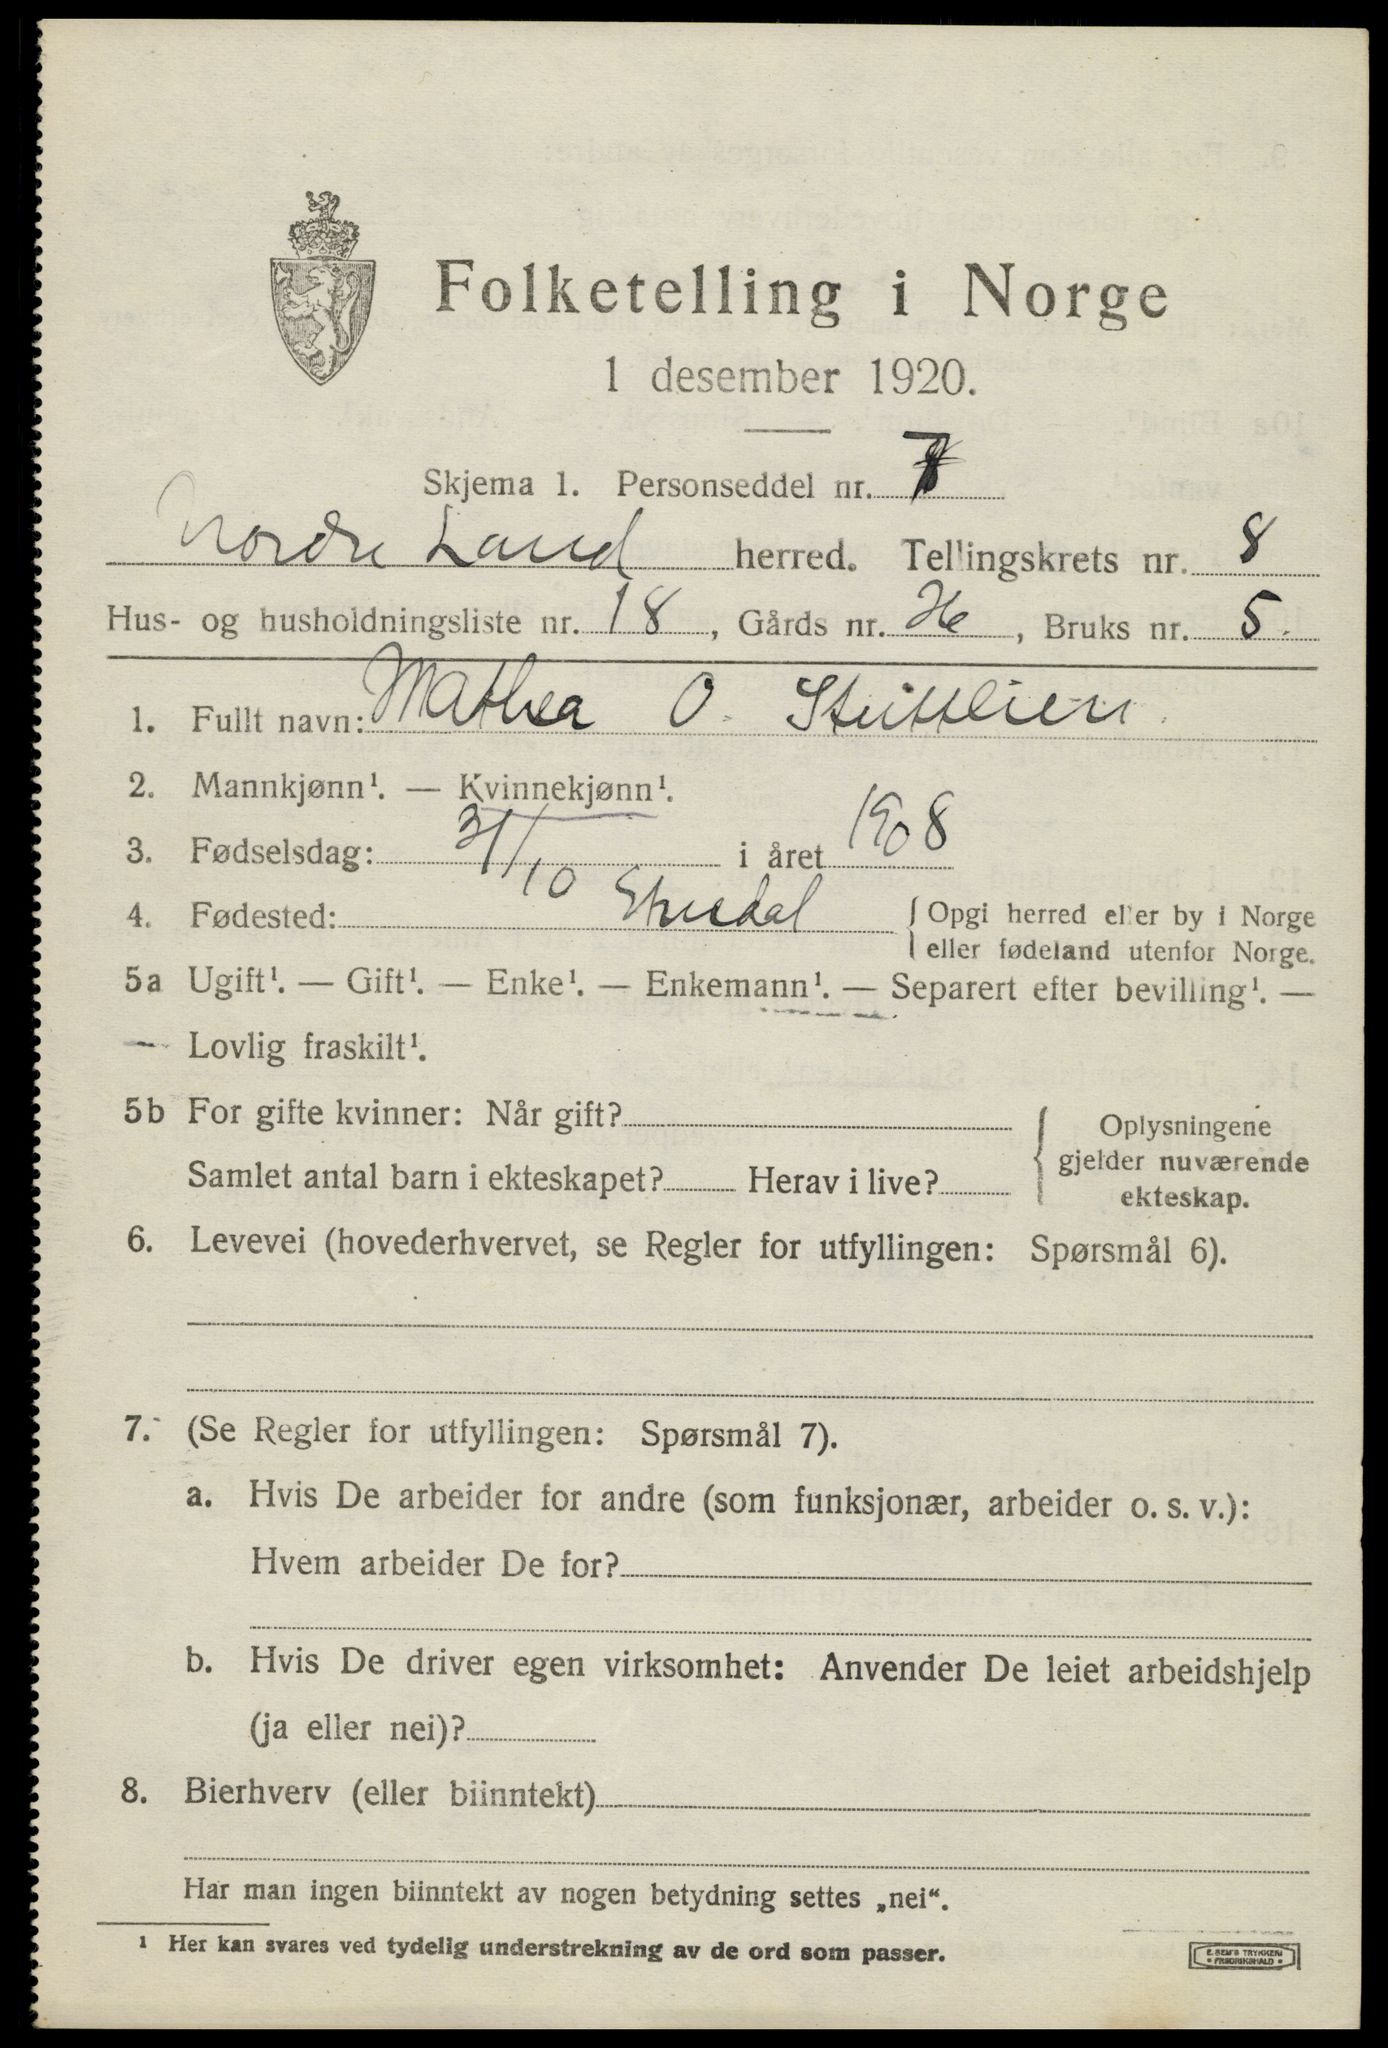 Folketelling i Norge
1 desember 1920.
Skjema 1. Personseddel nr. 7
Nordre Land herred. Tellingskrets nr. 8
Hus- og husholdningsliste nr. 18, Gårds nr. , Bruks nr. 5.
1. Fullt navn: Mathea O.
2. Mannkjønn¹. — Kvinnekjønn¹.
3. Fødselsdag: 31/10 i året 1908
4. Fødested: Etnedal { Opgi herred eller by i Norge
eller fødeland utenfor Norge.
5a Ugift¹. — Gift¹. — Enke¹. — Enkemann¹. — Separert efter bevilling¹. —
— Lovlig fraskilt¹.
5b For gifte kvinner: Når gift? { Oplysningene
gjelder nuværende
Samlet antal barn i ekteskapet? Herav i live? ekteskap.
6. Levevei (hovederhvervet, se Regler for utfyllingen: Spørsmål 6).
7. (Se Regler for utfyllingen: Spørsmål 7).
a. Hvis De arbeider for andre (som funksjonær, arbeider o. s. v.):
Hvem arbeider De for?
b. Hvis De driver egen virksomhet: Anvender De leiet arbeidshjelp
(ja eller nei)?
8. Bierhverv (eller biinntekt)
Har man ingen biinntekt av nogen betydning settes „nei“.
¹ Her kan svares ved tydelig understrekning av de ord som passer.
E. SEM'S TRYKKERI
• FREDRIKSHALD •